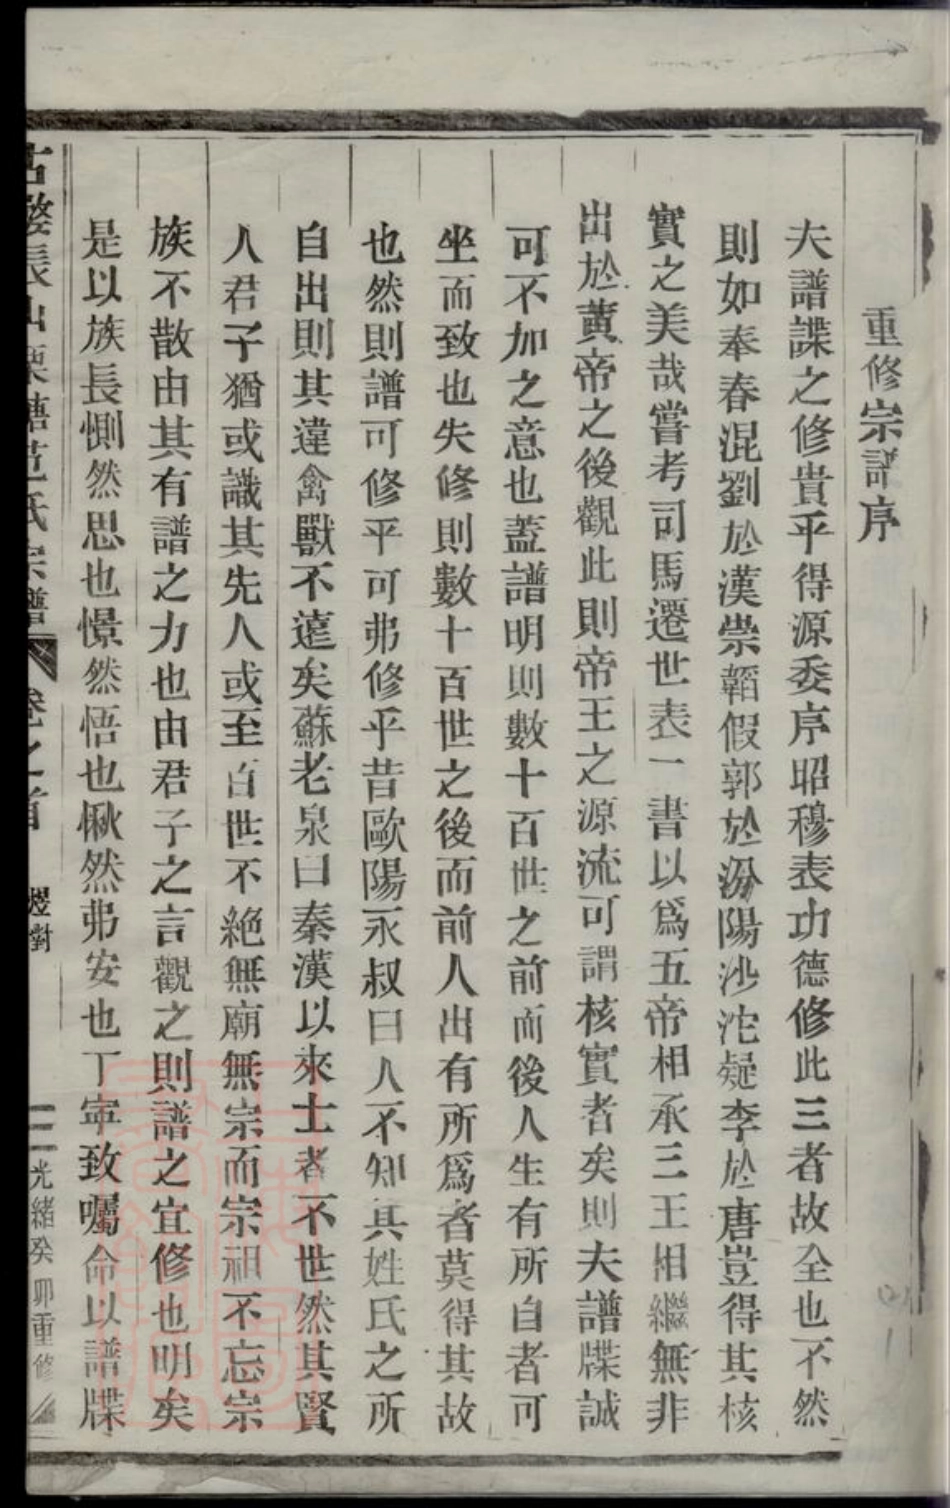 重修宗譜序
夫譜諜之修貴乎得源委序昭穆表功德修此三者故全也不然
則如奉春混劉於漢崇韜假郭於汾陽沙沱疑李於唐豈得其核
實之美哉嘗考司馬遷世表一書以爲五帝相承三王相繼無非
出於黃帝之後觀此則帝王之源流可謂核實者矣則夫譜牒誠
可不加之意也蓋譜明則數十百世之前而後人生有所自者可
坐而致也失修則數十百世之後而前人出有所爲者莫得其故
也然則譜可修乎可弗修乎昔歐陽永叔曰人不知其姓氏之所
自出則其違禽獸不遠矣蘇老泉曰秦漢以來士者不世然其賢
人君子猶或識其先人或至百世不絕無廟無宗而宗祖不忘宗
族不散由其有譜之力也由君子之言觀之則譜之宜修也明矣
是以族長惻然思也憬然悟也愀然弗安也丁寧致囑命以譜牒
古婺長山栗塘范氏宗譜 卷之首 煜對 二 光緒癸卯重修